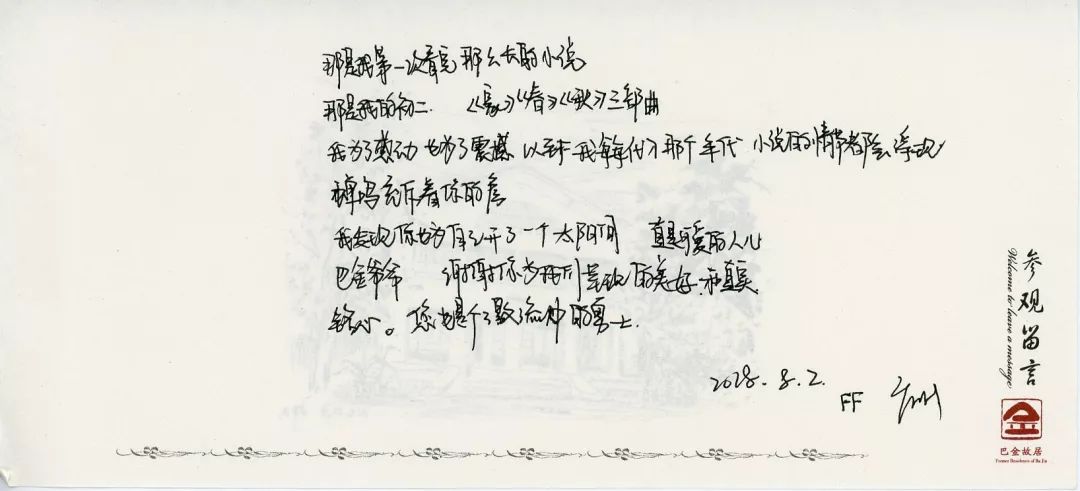 那是我第一次看完那么长的小说
那是我的初二. 《家》《春》《秋》三部曲
我为了感动 也为了震撼 以至于我每每付入那个年代 小说的情节都会浮现
充斥着你的
我发现你也为自己开了一个太阳间 真是可爱的人儿
巴金爷爷 谢谢你为我们呈现的美好和真实
您也是个了敢 的勇士.
2028.8.2.
FF 广州
参观留言
Welcome to leave a message
巴金故居
Former Residence of Ba Jin